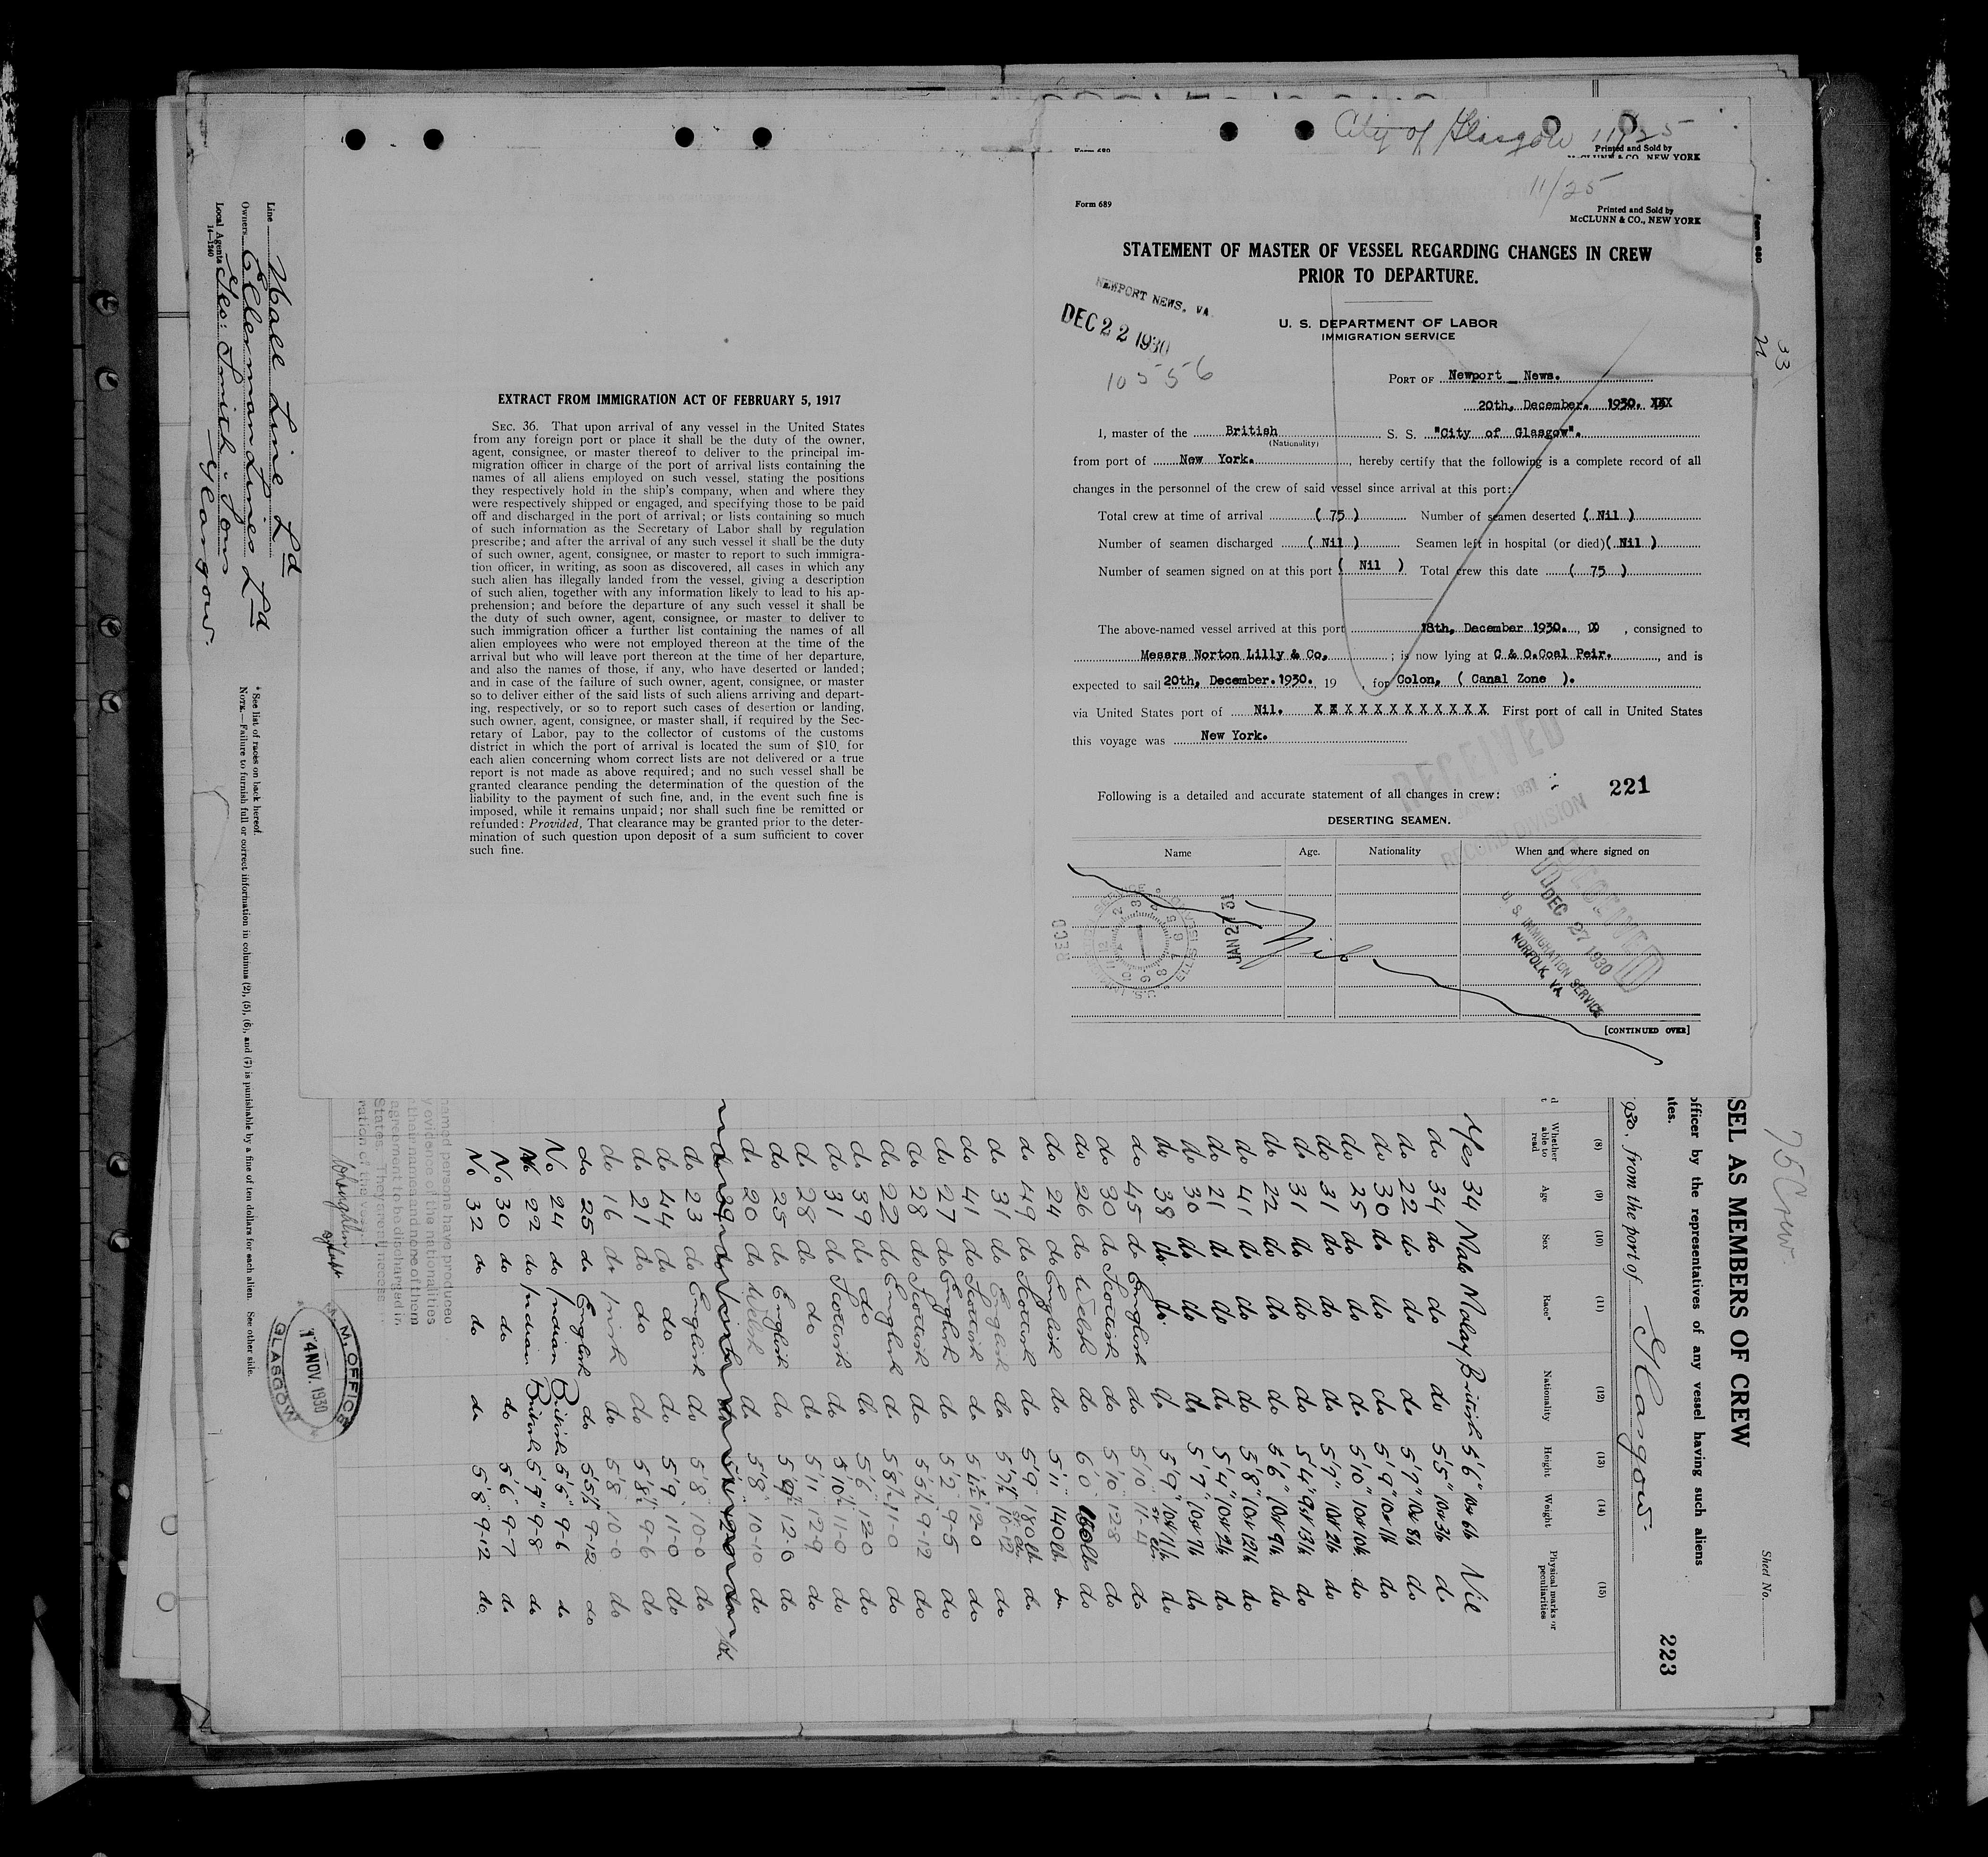 City of Glasgow 11/25
Form 689
Printed and Sold by
McCLUNN & CO., NEW YORK
11/25
Form 689
Printed and Sold by
McCLUNN & CO., NEW YORK
STATEMENT OF MASTER OF VESSEL REGARDING CHANGES IN CREW
PRIOR TO DEPARTURE.
NEWPORT NEWS, VA.
DEC 22 1930
10556
U. S. DEPARTMENT OF LABOR
IMMIGRATION SERVICE
PORT OF Newport News.
20th, December. 1930. XXX
I, master of the British S. S. "City of Glasgow".
(Nationality)
from port of New York. , hereby certify that the following is a complete record of all
changes in the personnel of the crew of said vessel since arrival at this port:
Total crew at time of arrival ( 75 ) Number of seamen deserted ( Nil )
Number of seamen discharged ( Nil ) Seamen left in hospital (or died) ( Nil )
Number of seamen signed on at this port ( Nil ) Total crew this date ( 75 )
The above-named vessel arrived at this port 18th, December 1930. , consigned to
Messrs Norton Lilly & Co, ; is now lying at C & O.Coal Peir. , and is
expected to sail 20th, December.1930. , 19 , for Colon, ( Canal Zone ).
via United States port of Nil. X X X X X X X X X X X X First port of call in United States
this voyage was New York.
RECEIVED
1931
RECORD DIVISION
221
Following is a detailed and accurate statement of all changes in crew:
DESERTING SEAMEN.
Name Age. Nationality When and where signed on
Nil
RECD
JAN 2
ELLIS
RECEIVED
DEC 27 1930
U. S. IMMIGRATION SERVICE
NORFOLK, VA
[CONTINUED OVER]
EXTRACT FROM IMMIGRATION ACT OF FEBRUARY 5, 1917
SEC. 36. That upon arrival of any vessel in the United States
from any foreign port or place it shall be the duty of the owner,
agent, consignee, or master thereof to deliver to the principal im-
migration officer in charge of the port of arrival lists containing the
names of all aliens employed on such vessel, stating the positions
they respectively hold in the ship's company, when and where they
were respectively shipped or engaged, and specifying those to be paid
off and discharged in the port of arrival; or lists containing so much
of such information as the Secretary of Labor shall by regulation
prescribe; and after the arrival of any such vessel it shall be the duty
of such owner, agent, consignee, or master to report to such immigra-
tion officer, in writing, as soon as discovered, all cases in which any
such alien has illegally landed from the vessel, giving a description
of such alien, together with any information likely to lead to his ap-
prehension; and before the departure of any such vessel it shall be
the duty of such owner, agent, consignee, or master to deliver to
such immigration officer a further list containing the names of all
alien employees who were not employed thereon at the time of the
arrival but who will leave port thereon at the time of her departure,
and also the names of those, if any, who have deserted or landed;
and in case of the failure of such owner, agent, consignee, or master
so to deliver either of the said lists of such aliens arriving and depart-
ing, respectively, or so to report such cases of desertion or landing,
such owner, agent, consignee, or master shall, if required by the Sec-
retary of Labor, pay to the collector of customs of the customs
district in which the port of arrival is located the sum of $10 for
each alien concerning whom correct lists are not delivered or a true
report is not made as above required; and no such vessel shall be
granted clearance pending the determination of the question of the
liability to the payment of such fine, and, in the event such fine is
imposed, while it remains unpaid; nor shall such fine be remitted or
refunded: Provided, That clearance may be granted prior to the deter-
mination of such question upon deposit of a sum sufficient to cover
such fine.
Sheet No.
223
75 Crew.
SEL AS MEMBERS OF CREW
officer by the representatives of any vessel having such aliens
ates.
1930, from the port of Glasgow.
(8) (9) (10) (11) (12) (13) (14) (15)
Whether able to read Age Sex Race* Nationality Height Weight Physical marks or peculiarities
Yes 34 Male Malay British 5'6" Nil
do 34 do do do 5'5" do
do 22 do do do 5'7" do
do 30 do do do 5'9" do
do 25 do do do 5'10" do
do 31 do do do 5'7" do
do 31 do do do 5'4" do
do 22 do do do 5'6" do
do 41 do do do 5'8" do
do 21 do do do 5'4" do
do 30 do do do 5'7" do
do 38 do do do 5'9" do
do 45 do English do 5'10 11-4 do
do 30 do Scottish do 5'10 12-8 do
do 26 do Welsh do 6'0 160lbs do
do 24 do English do 5'11 140lb do
do 49 do Scottish do 5'9 180lb do
do 31 do English do 5'7½ 10-12 do
do 41 do Scottish do 12-0 do
do 27 do English do 5'2 9-5 do
do 28 do Scottish do 5'5½ 9-12 do
do 22 do English do 5'8½ 11-0 do
do 39 do do do 5'6 12-0 do
do 31 do Scottish do 5'10½ 11-0 do
do 28 do do do 5'11 12-9 do
do 25 do English do 12-0 do
do 20 do Welsh do 5'8 10-10 do
do 23 do English do 5'8 10-0 do
do 44 do do do 5'9 11-0 do
do 21 do do do 5'8½ 9-6 do
do 16 do Irish do 5'8 10-0 do
do 25 do English do 5'5½ 9-12 do
No 24 do Indian British 5'5" 9-6 do
No 22 do Indian British 5'7" 9-8 do
No 30 do do do 5'6" 9-7 do
No 32 do do do 5'8" 9-12 do
named persons have produced
y evidence of the nationalities
their names and none of them
agreement to be discharged in
States. They are all necess
ration of the vess
M. OFFICE
14 NOV. 1930
GLASGOW
* See list of races on back hereof.
NOTE.—Failure to furnish full or correct information in columns (2), (5), (6), and (7) is punishable by a fine of ten dollars for each alien. See other side.
Line Hall Line Ld
Owners Ellerman Lines Ld
Local Agents Geo: Smith & Sons
Glasgow.
14—1240